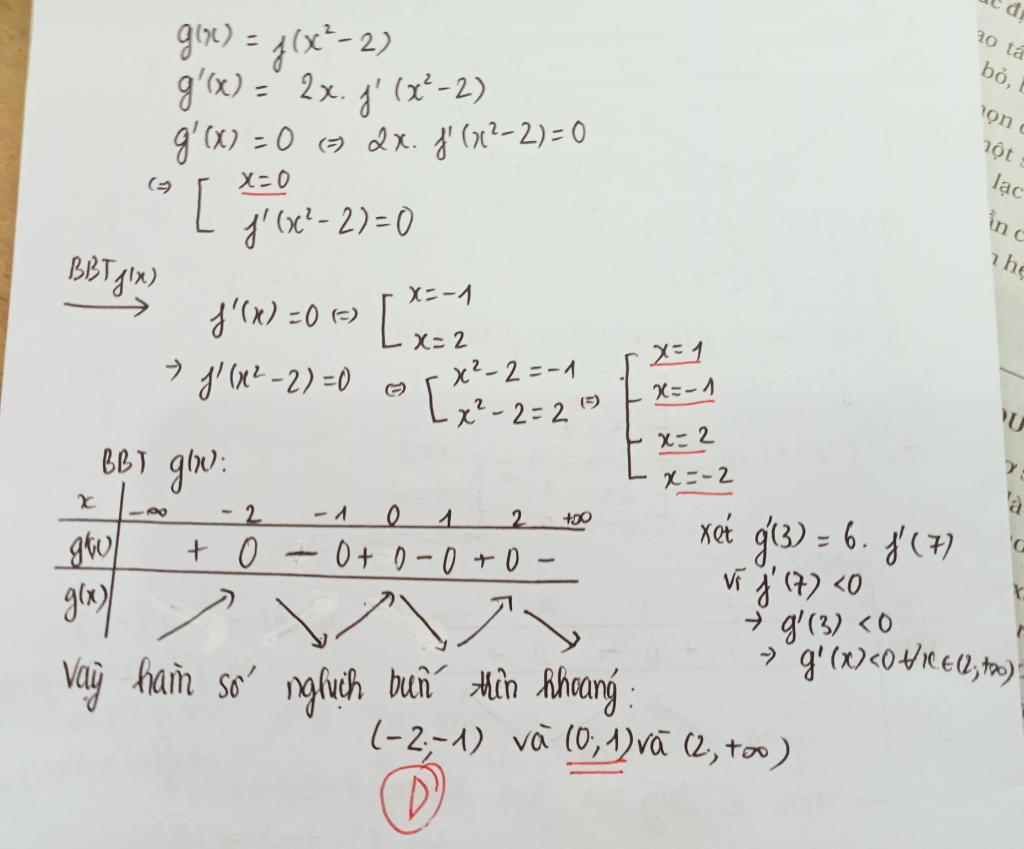 g(x) = f(x² - 2)
g'(x) = 2x. f'(x² - 2)
g'(x) = 0 ⇔ 2x. f'(x² - 2) = 0
⇔ [ x = 0
f'(x² - 2) = 0
BBT f'(x)
f'(x) = 0 ⇔ [ x = -1
x = 2
→ f'(x² - 2) = 0 ⇔ [ x² - 2 = -1
x² - 2 = 2 ⇔ [ x = 1
x = -1
x = 2
x = -2
BBT g(x):
x -∞ -2 -1 0 1 2 +∞
g'(x) + 0 - 0 + 0 - 0 + 0 -
g(x)
xét g'(3) = 6. f'(7)
vì f'(7) < 0
→ g'(3) < 0
→ g'(x) < 0 ∀x ∈ (2, +∞)
Vậy hàm số nghịch biến trên khoảng:
(-2; -1) và (0; 1) và (2; +∞)
D
ao tá
bỏ,
lạc